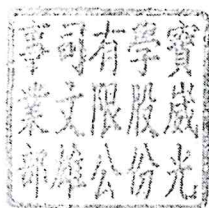 寶崴光
學股份
有限公
司文雄
事業部